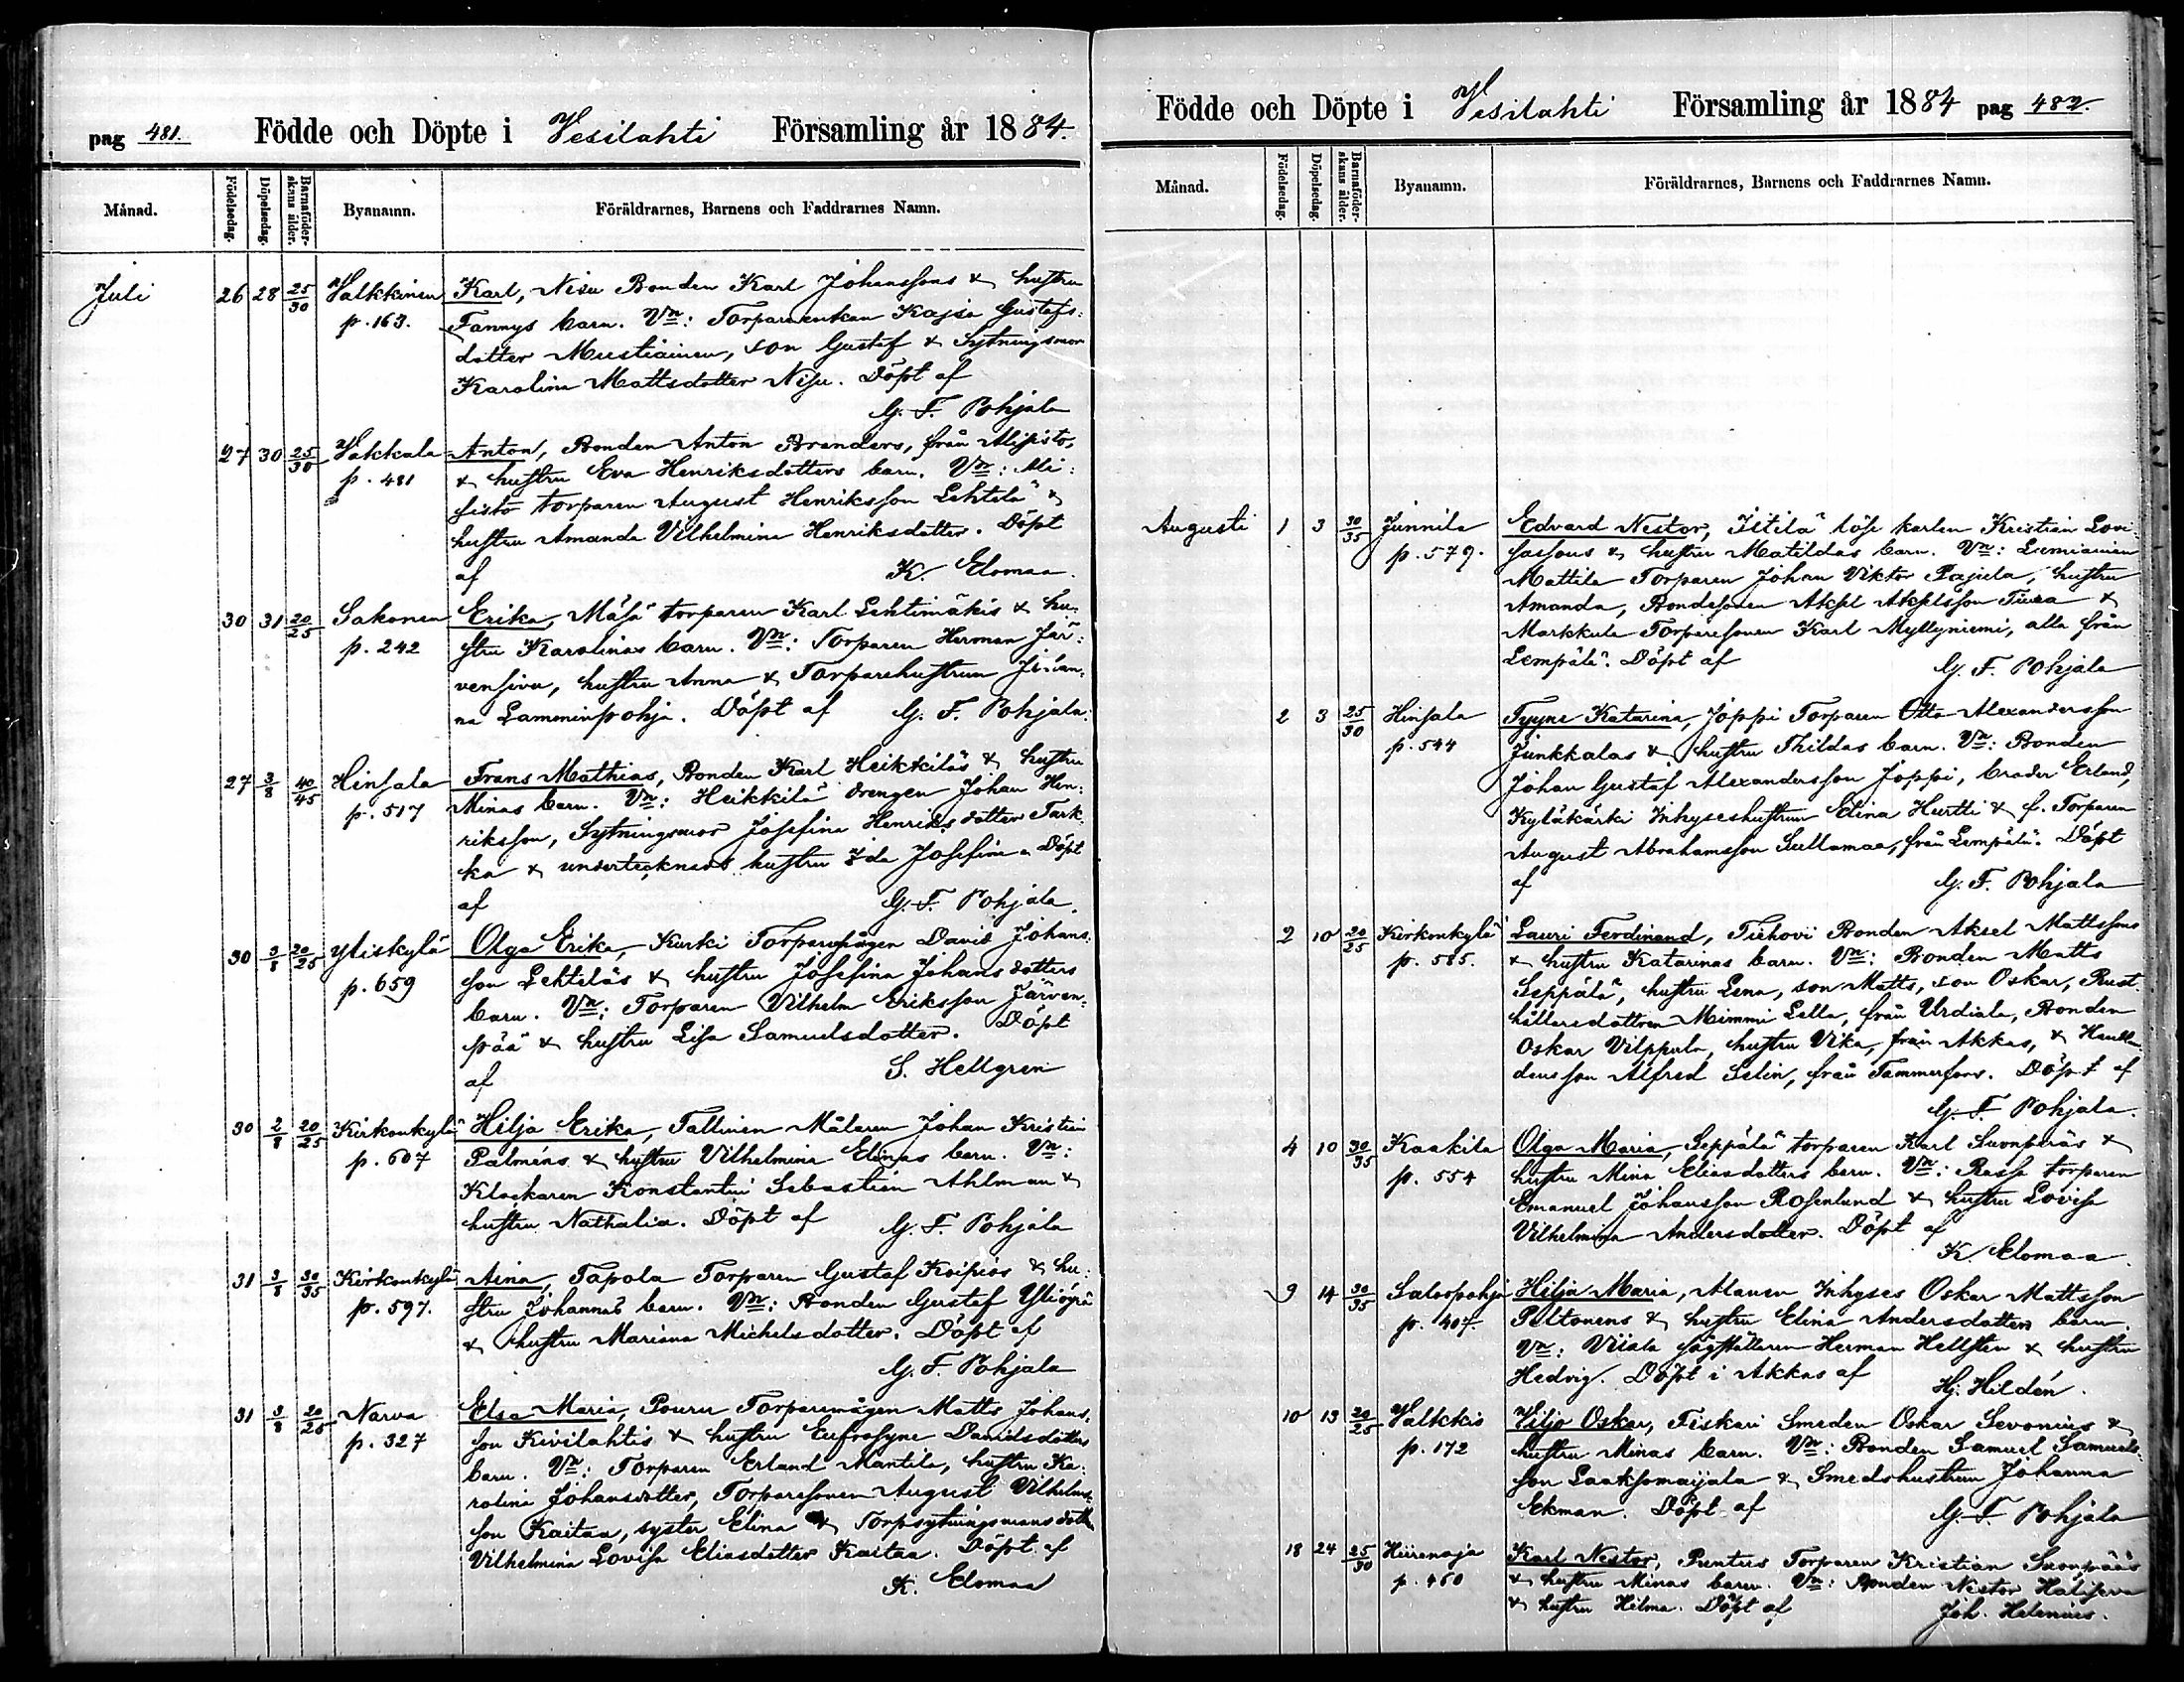 pag 481. Födde och Döpte i Vesilahti Församling år 1884.
Månad. Födelsedag. Döpelsedag. Barnaföderskans ålder. Byanamn. Föräldrarnes, Barnens och Faddrarnes Namn.
Juli 26 28 25/30 Valkkinen Karl, Nisu Bonden Karl Johanssons & hustru
p. 163. Fannys barn. Vn: Torparenkan Kajsa Gustafs:
dotter Mustiainen, son Gustaf & Sytningsmor
Karolina Mattsdotter Nisu. Döpt af
G. F. Pohjala
27 30 25/30 Vakkala Anton, Bonden Anton Branders, från Alisisto,
p. 481 & hustru Eva Henriksdotters barn. Vn: Ali:
sisto torparen August Henriksson Lehtelä &
hustru Amanda Vilhelmina Henriksdotter. Döpt
af K. Elomaa.
30 31 20/25 Sakonen Erika, Mäsä torparen Karl Lehtimäkis & hu:
p. 242 stru Karolinas barn. Vn: Torparen Herman Jär:
vensivu, hustru Anna & Torparehustrun Johan:
na Lamminpohja. Döpt af G. F. Pohjala.
27 3/8 40/45 Hinsala Frans Mathias, Bonden Karl Heikkiläs & hustru
p. 517 Minas barn. Vn: Heikkilä drengen Johan Hen:
riksson, Sytningsmor Josefina Henriksdotter Tark:
ka & undertecknads hustru Ida Josefina. Döpt
af G. F. Pohjala.
30 3/8 20/25 Yliskylä Olga Erika, Kurki Torparemågen David Johans:
p. 659 son Lehteläs & hustru Josefina Johansdotters
barn. Vn: Torparen Vilhelm Eriksson Järven:
pää & hustru Lisa Samuelsdotter. Döpt
af S. Hellgren
30 2/8 20/25 Kirkonkylä Hilja Erika, Tallinen Målaren Johan Kristian
p. 607 Palméns & hustru Vilhelmina Elinas barn. Vn:
Klockaren Konstantin Sebastian Ahlman &
hustru Nathalia. Döpt af G. F. Pohjala
31 3/8 30/35 Kirkonkylä Aina, Tapola Torparen Gustaf Koipios & hu:
p. 597. stru Johannas barn. Vn: Bonden Gustaf
& hustru Mariana Michelsdotter. Döpt af
G. F. Pohjala
31 3/8 20/25 Narva Elsa Maria, Pouru Torparemågen Matts Johans:
p. 327 son Kivilahtis & hustru Eufrosyne Danielsdotters
barn. Vn: Torparen Erland Mantila, hustru Ka:
rolina Johansdotter, Torparesonen August Vilhelms:
son Kaitaa, syster Elina & Torpsytningsmansdotter
Vilhelmina Lovisa Eliasdotter Kaitaa. Döpt af
K. Elomaa
Födde och Döpte i Vesilahti Församling år 1884 pag 482.
Månad. Födelsedag. Döpelsedag. Barnaföderskans ålder. Byanamn. Föräldrarnes, Barnens och Faddrarnes Namn.
Augusti 1 3 30/35 Junnila Edvard Nestor, Iitilä löse karlen Kristian Lovi:
p. 579. sassons & hustru Matildas barn. Vn: Lumiainen
Mattila Torparen Johan Viktor Pajula, hustru
Amanda, Bondesonen Aksel Akselsson Tiura &
Markkula Torparesonen Karl Myllyniemi, alla från
Lempälä. Döpt af G. F. Pohjala
2 3 25/30 Hinsala Tyyne Katarina, Joppi Torparen Otto Alexandersson
p. 544 Junkkalas & hustru Thildas barn. Vn: Bonden
Johan Gustaf Alexandersson Joppi, broder Erland,
Kyläkärki Inhyseshustrun Elina Hurtti & f. Torparen
August Abrahamsson Sullamaa, från Lempälä. Döpt
af G. F. Pohjala
2 10 20/25 Kirkonkylä Lauri Ferdinand, Tiehovi Bonden Aksel Mattssons
p. 585. & hustru Katarinas barn. Vn: Bonden Matts
Seppälä, hustru Lena, son Matts, son Oskar, Rust:
hållaredottren Mimmi Lella, från Urdiala, Bonden
Oskar Vilppula, hustru Vika, från Akkas, & Handlan:
densson Alfred Selin, från Tammerfors. Döpt af
G. F. Pohjala.
4 10 30/35 Kaakila Olga Maria, Seppälä torparen Karl Suonperäs &
p. 554 hustru Mina Eliasdotters barn. Vn: Rassa torparen
Emanuel Johansson Rosenlund & hustru Lovisa
Vilhelmina Andersdotter. Döpt af
K. Elomaa.
9 14 30/35 Salospohja Hilja Maria, Alanen Inhyses Oskar Mattsson
p. 407. Peltonens & hustru Elina Andersdotters barn.
Vn: Viiala sågställaren Herman Hellsten & hustru
Hedvig. Döpt i Akkas af Hj. Hildén.
10 13 20/25 Valkkis Viljo Oskar, Fiskari Smeden Oskar Sevonius &
p. 172 hustru Minas barn. Vn: Bonden Samuel Samuels:
son Laaksomaijala & Smedshustrun Johanna
Ekman. Döpt af G. F. Pohjala
18 24 25/30 Hiirenoja Karl Nestor, Puntus Torparen Kristian Suonpääs
p. 460 & hustru Minas barn. Vn: Bonden Nestor
& hustru Hilma. Döpt af Joh. Helenius.